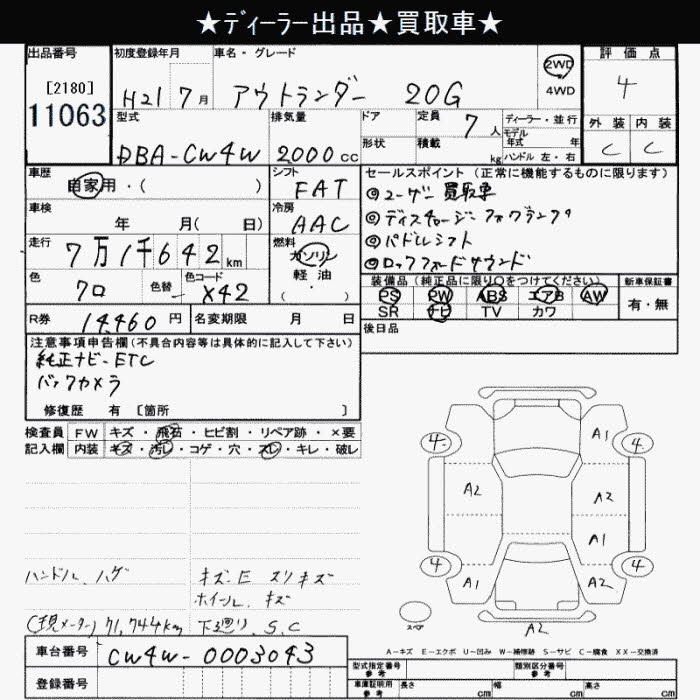 ★ディーラー出品★買取車★
出品番号 初度登録年月 車名・グレード 2WD 4WD 評価点
[2180] 11063 H21 7月 アウトランダー 20G 4
型式 排気量 ドア 定員 7人 ディーラー・並行 外装 内装
形状 積載 kg モデル年式 年式 ハンドル 左・右 C C
DBA-CW4W 2000cc
車歴 シフト セールスポイント(正常に機能するものに限ります)
自家用・( ) FAT ◎ユーザー買取車
車検 冷房 ◎ディスチャージ フォグランプ
年 月( 日) AAC ◎パドルシフト
走行 燃料 ◎ロックフォードサウンド
7万1千642km ガソリン
軽油
・( )
色 色替 色コード 装備品(純正品に限り○をつけてください) 新車保証書
クロ - X42 PS PW ABS エアB AW 有・無
SR ナビ TV カワ
R券 14,460円 名変期限 月 日 後日品
注意事項申告欄(不具合内容等は具体的に記入して下さい)
純正ナビ・ETC
バックカメラ
修復歴 有 [箇所 ]
検査員 FW キズ・飛石・ヒビ割・リペア跡・×要
記入欄 内装 キズ・汚レ・コゲ・穴・スレ・キレ・破レ
4 A1 4
A2 A2
A1
4 A1 A2 4
スペア A2
ハンドル ハゲ キズ・E スリキズ
ホイール キズ
(現メーター) 71,744km 下廻り、S、C
A-キズ E-エクボ U-凹み W-補修跡 S-サビ C-腐食 XX-交換済
車台番号 CW4W-0003043
登録番号
型式指定番号 参考 類別区分番号 参考
車庫証明用 参考 長さ cm 幅 cm 高さ cm